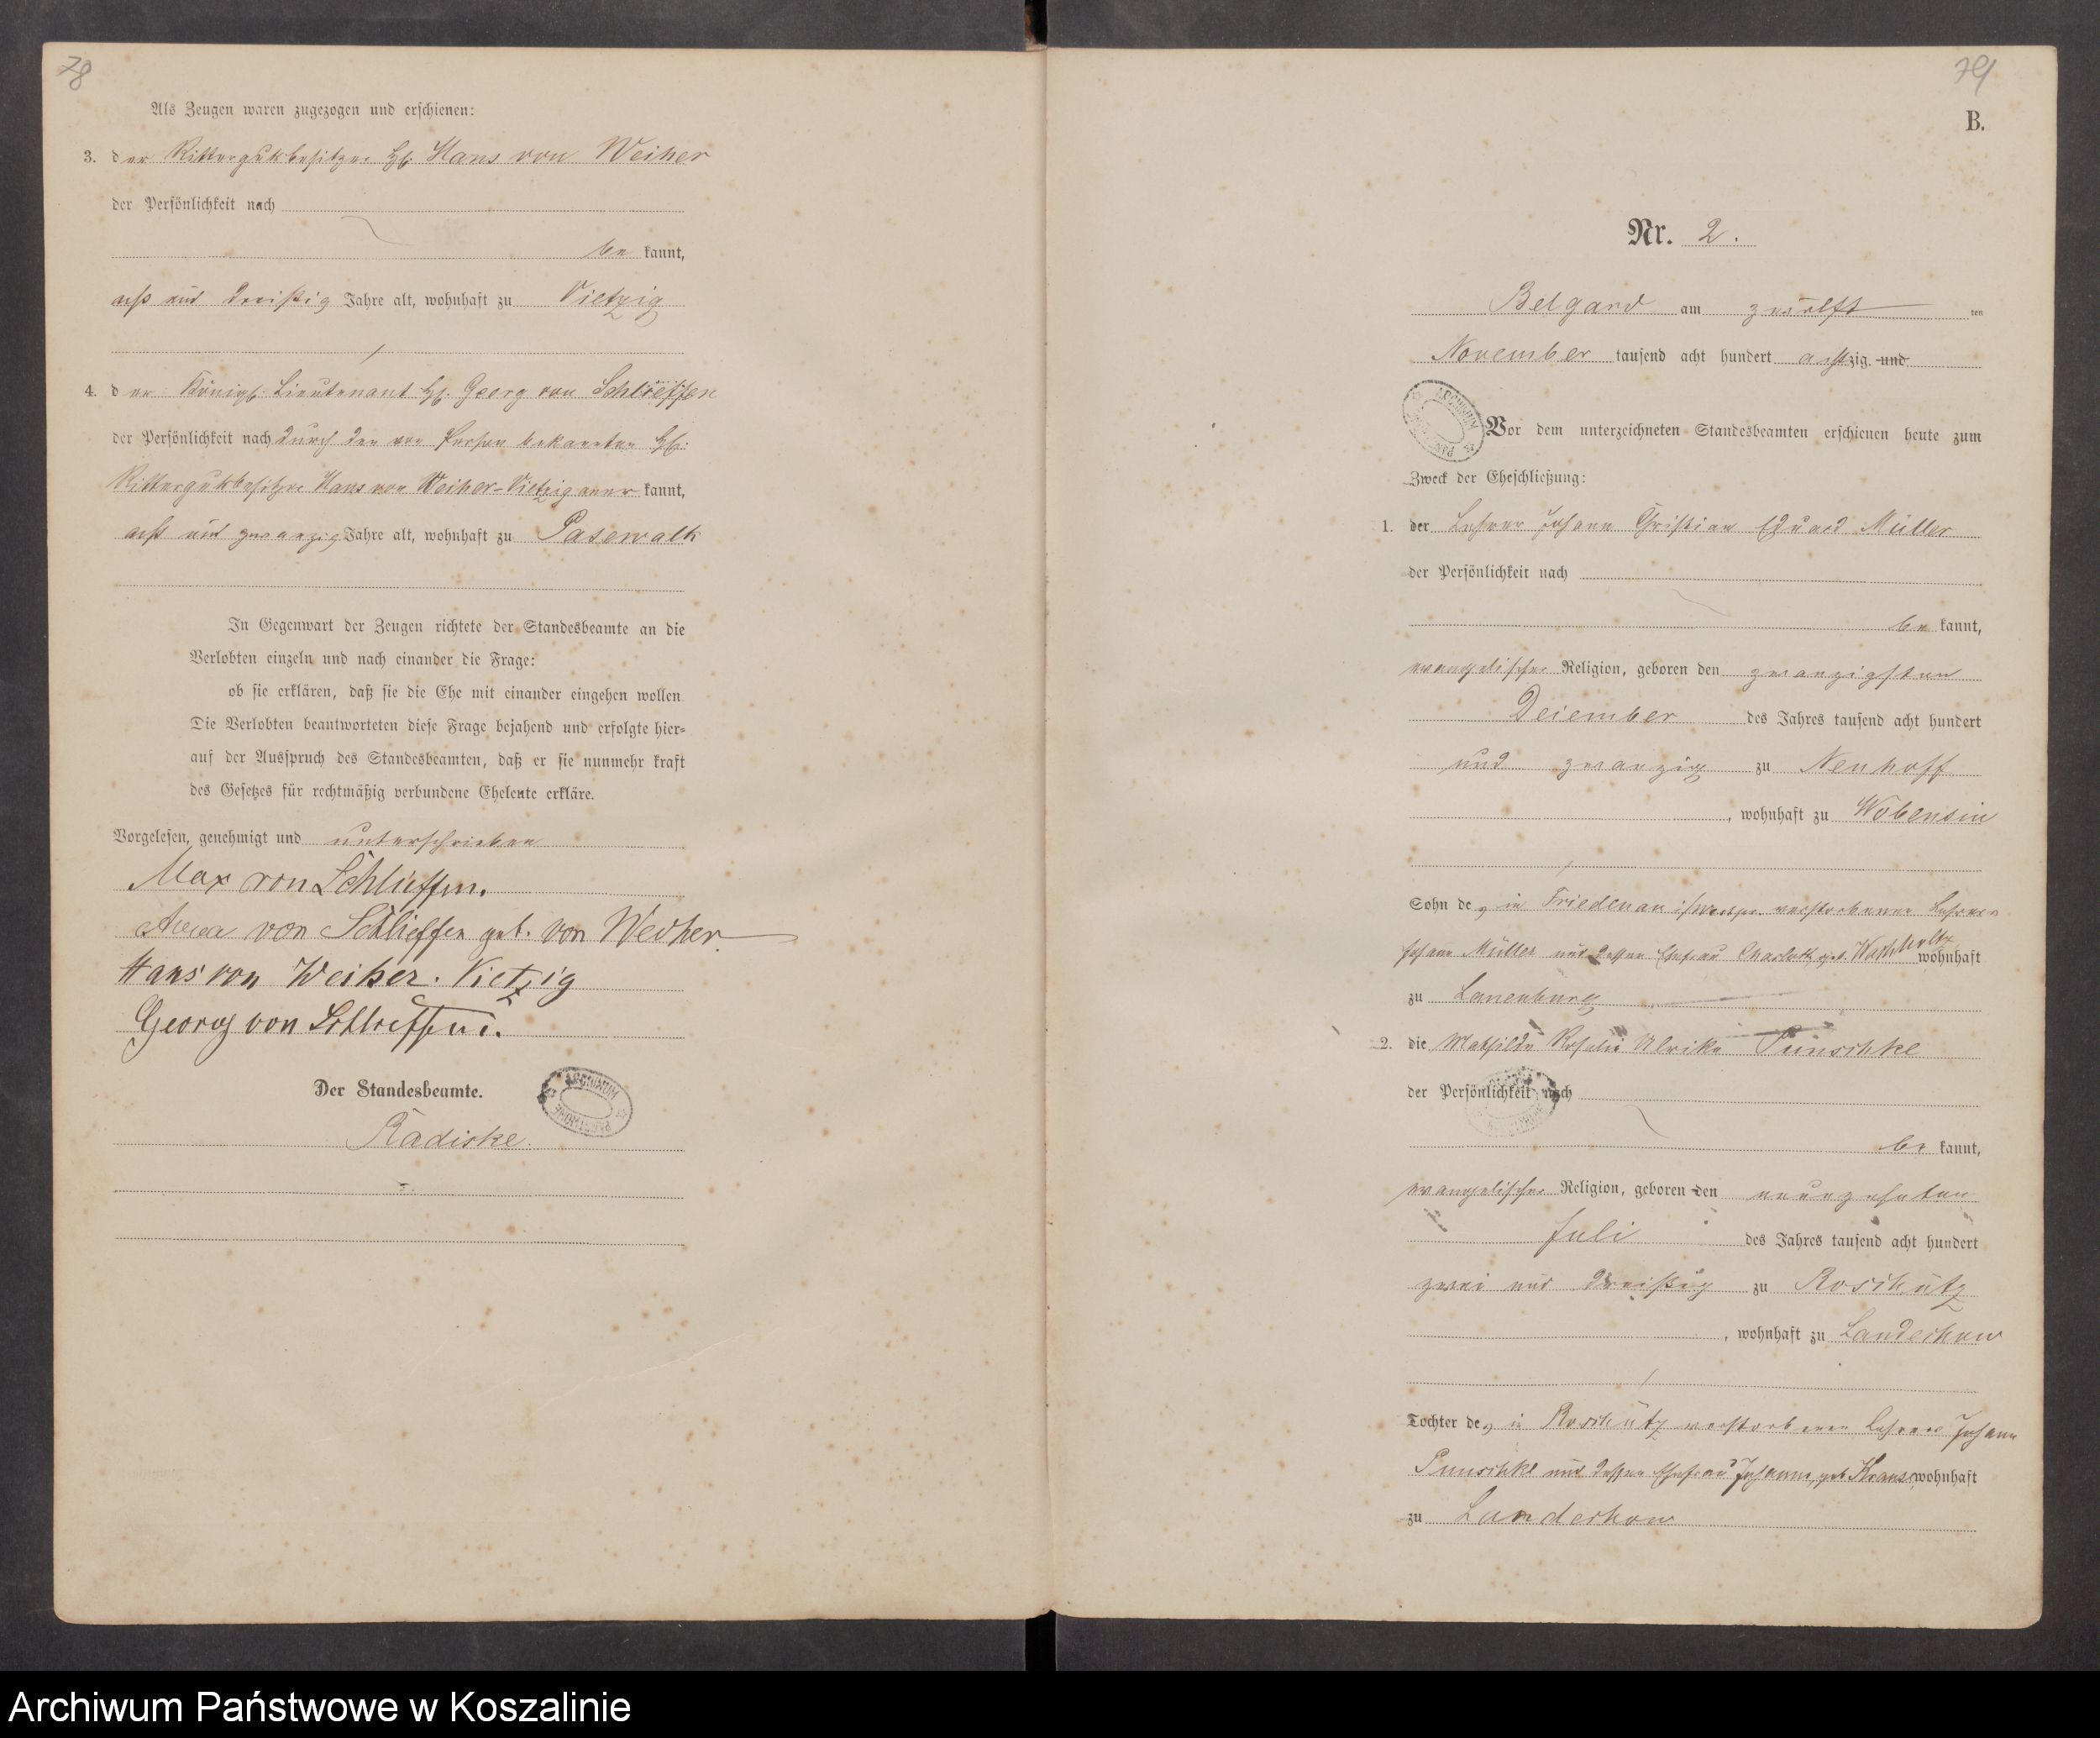 78
Als Zeugen waren zugezogen und erschienen:
3. der Rittergutsbesitzer Hans von Weiher
der Persönlichkeit nach
be kannt,
acht und dreißig Jahre alt, wohnhaft zu Vietzig
4. der Königl. Lieutenant Georg von Schlieffen
der Persönlichkeit nach durch den von Person bekannten
Rittergutsbesitzer Hans von Weiher-Vietzig aner kannt,
acht und zwanzig Jahre alt, wohnhaft zu Pasewalk
In Gegenwart der Zeugen richtete der Standesbeamte an die
Verlobten einzeln und nach einander die Frage:
ob sie erklären, daß sie die Ehe mit einander eingehen wollen.
Die Verlobten beantworteten diese Frage bejahend und erfolgte hier-
auf der Ausspruch des Standesbeamten, daß er sie nunmehr kraft
des Gesetzes für rechtmäßig verbundene Eheleute erkläre.
Vorgelesen, genehmigt und unterschrieben
Max von Schlieffen.
von Schlieffen geb. von Weiher
Hans von Weiher. Vietzig
Georg von Schlieffen
Der Standesbeamte.
Radiske.
79
B.
Nr. 2.
Belgard am zwölf ten
November tausend acht hundert achtzig und
Vor dem unterzeichneten Standesbeamten erschienen heute zum
Zweck der Eheschließung:
1. der Lehrer Johann Christian Eduard Müller
der Persönlichkeit nach
be kannt,
evangelischer Religion, geboren den zwanzigsten
Dezember des Jahres tausend acht hundert
und zwanzig zu Neuhoff
, wohnhaft zu Wobensin
Sohn des in Friedenau verstorbenen Lehrers
Johann Müller und dessen Ehefrau Charlotte geb. wohnhaft
zu Lauenburg
2. die Mathilde Rosalie Ulrike Punschke
der Persönlichkeit nach
be kannt,
evangelischer Religion, geboren den neunzehnten
Juli des Jahres tausend acht hundert
zwei und dreißig zu Roschütz
, wohnhaft zu Landechow
Tochter des in Roschütz verstorbenen Lehrers Johann
Punschke und dessen Ehefrau Johanne, geb. Krause wohnhaft
zu Landechow
Archiwum Państwowe w Koszalinie